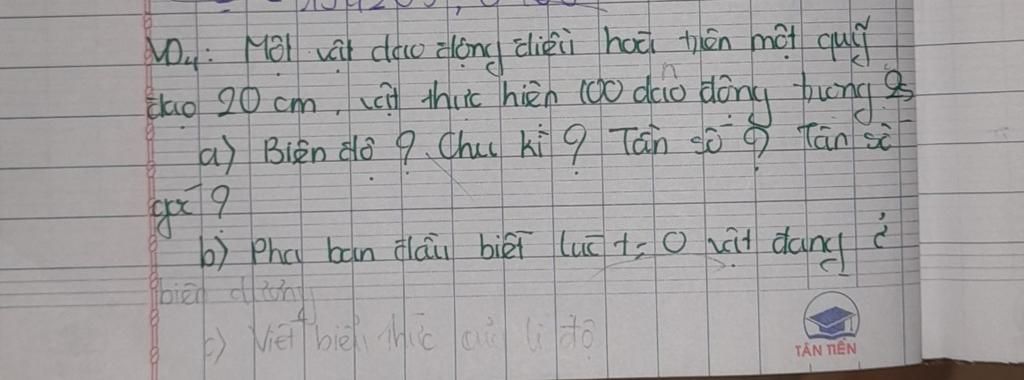 VD4: Một vật dao động điều hoà trên một quỹ
đạo 20 cm, vật thực hiện 100 dao động trong
a) Biên độ ? Chu kì ? Tần số ? Tần số
góc ?
b) Pha ban đầu biết lúc t = 0 vật đang ở
biên dương
c) Viết biểu thức của li độ
TÂN TIẾN